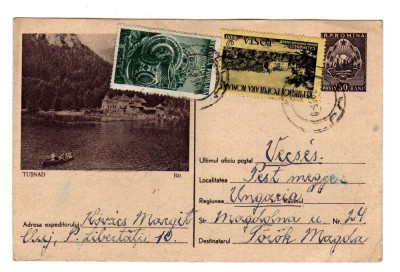 R.P. ROMINA
POSTA
REPUBLICA POPULARA ROMANA
POSTA 30 BANI
TUȘNAD
Ultimul oficiu poștal Vecsés.
Localitatea Pest megye
Regiunea Ungaria
Str. Magdolna u. Nr. 24
Destinatarul Török Magda
Adresa expeditorului Kovács Margit
Cluj, P. Libertății 10.